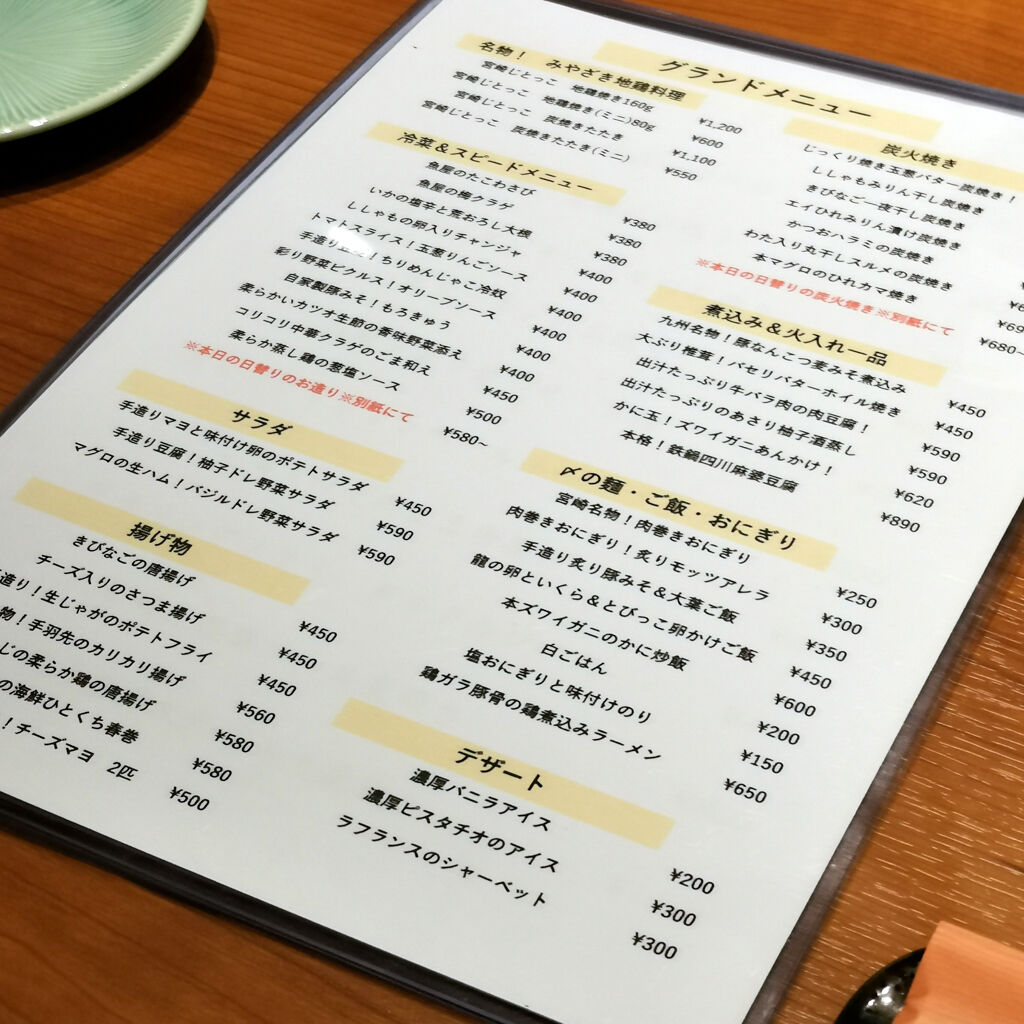 グランドメニュー
名物！ みやざき地鶏料理
宮崎じとっこ 地鶏焼き160g ¥1,200
宮崎じとっこ 地鶏焼き(ミニ)80g ¥600
宮崎じとっこ 炭焼きたたき ¥1,100
宮崎じとっこ 炭焼きたたき(ミニ) ¥550
冷菜＆スピードメニュー
魚屋のたこわさび ¥380
魚屋の梅クラゲ ¥380
いかの塩辛と荒おろし大根 ¥380
ししゃもの卵入りチャンジャ ¥400
トマトスライス！玉葱りんごソース ¥400
手造り ！ちりめんじゃこ冷奴 ¥400
彩り野菜ピクルス！オリーブソース ¥400
自家製豚みそ！もろきゅう ¥400
柔らかいカツオ生節の香味野菜添え ¥400
コリコリ中華クラゲのごま和え ¥450
柔らか蒸し鶏の葱塩ソース ¥500
※本日の日替りのお造り※別紙にて ¥580~
サラダ
手造りマヨと味付け卵のポテトサラダ ¥450
手造り豆腐！柚子ドレ野菜サラダ ¥590
マグロの生ハム！バジルドレ野菜サラダ ¥590
揚げ物
きびなごの唐揚げ ¥450
チーズ入りのさつま揚げ ¥450
造り！生じゃがのポテトフライ ¥450
物！手羽先のカリカリ揚げ ¥560
じの柔らか鶏の唐揚げ ¥580
の海鮮ひとくち春巻 ¥580
！チーズマヨ 2匹 ¥500
炭火焼き
じっくり焼き玉葱バター炭焼き！
ししゃもみりん干し炭焼き
きびなご一夜干し炭焼き
エイひれみりん漬け炭焼き
かつおハラミの炭焼き
わた入り丸干しスルメの炭焼き
本マグロのひれカマ焼き ¥69
※本日の日替りの炭火焼き※別紙にて ¥680~
煮込み＆火入れ一品
九州名物！豚なんこつ麦みそ煮込み ¥450
大ぶり椎茸！パセリバターホイル焼き ¥450
出汁たっぷり牛バラ肉の肉豆腐！ ¥590
出汁たっぷりのあさり柚子酒蒸し ¥590
かに玉！ズワイガニあんかけ！ ¥620
本格！鉄鍋四川麻婆豆腐 ¥890
〆の麺・ご飯・おにぎり
宮崎名物！肉巻きおにぎり ¥250
肉巻きおにぎり！炙りモッツアレラ ¥300
手造り炙り豚みそ＆大葉ご飯 ¥350
龍の卵といくら＆とびっこ卵かけご飯 ¥450
本ズワイガニのかに炒飯 ¥600
白ごはん ¥200
塩おにぎりと味付けのり ¥150
鶏ガラ豚骨の鶏煮込みラーメン ¥650
デザート
濃厚バニラアイス ¥200
濃厚ピスタチオのアイス ¥300
ラフランスのシャーベット ¥300